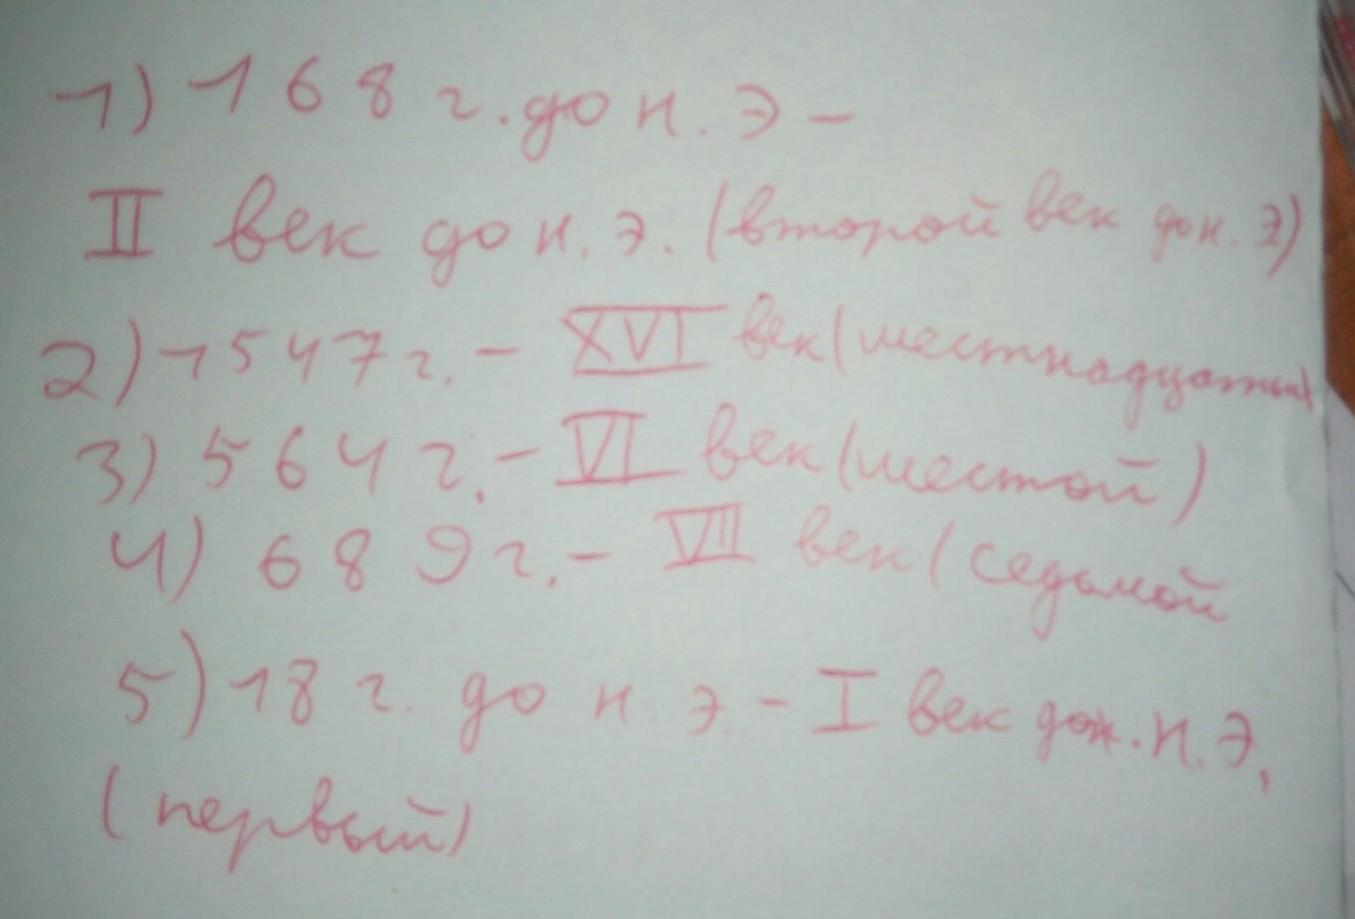 1) 168 г. до н. э –
II век до н. э. (второй век до н. э)
2) 1547 г. – XVI век (шестнадцатый
3) 564 г. – VI век (шестой)
4) 689 г. – VII век (седьмой
5) 18 г. до н э. – I век до н. э.
(первый)